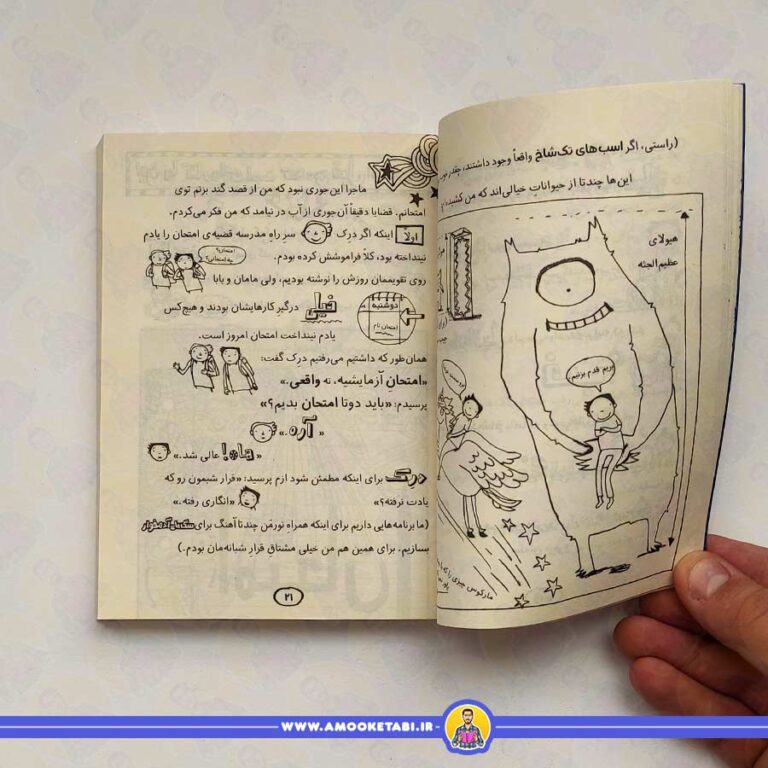 ماجرا این‌جوری نبود که من از قصد گند بزنم توی
امتحانم. قضایا دقیقاً آن‌جوری از آب در نیامد که من فکر می‌کردم.
اولاً اینکه اگر دِرِک سرِ راهِ مدرسه قضیه‌ی امتحان را یادم
نینداخته بود، کلاً فراموشش کرده بودم.
امتحان؟
چه امتحانی؟
روی تقویممان روزش را نوشته بودیم، ولی مامان و بابا
دوشنبه
امتحان نام
خیلی درگیرِ کارهایشان بودند و هیچ‌کس
یادم نینداخت امتحان امروز است.
همان‌طور که داشتیم می‌رفتیم دِرِک گفت:
«امتحانِ آزمایشیه، نه واقعی.»
پرسیدم: «باید دوتا امتحان بدیم؟»
«آره.»
«هاه! عالی شد.»
دِرِک برای اینکه مطمئن شود ازم پرسید: «قرار شبمون رو که
یادت نرفته؟» «انگاری رفته.»
(ما برنامه‌هایی داریم برای اینکه همراهِ نورمَن چندتا آهنگ برای
بسازیم. برای همین هم من خیلی مشتاق قرار شبانه‌مان بودم.)
۲۱
(راستی، اگر اسب‌های تک‌شاخ واقعاً وجود داشتند، چقدر
این‌ها چندتا از حیواناتِ خیالی‌اند که من کشیده‌ام
هیولای
عظیم‌الجثه
بریم قدم بزنیم
مارکوس چیزی را که
WWW.AMOOKETABI.IR